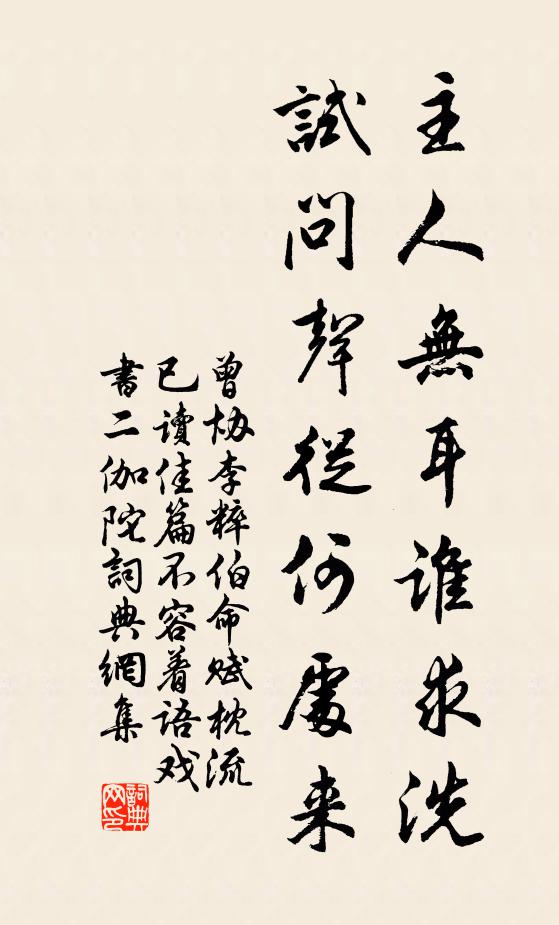 主人無耳谁求洗
試問聲從何處来
曾协李粹伯命赋枕流
已讀佳篇不容着语戏
書二伽陀詞典網集
詞典
网印